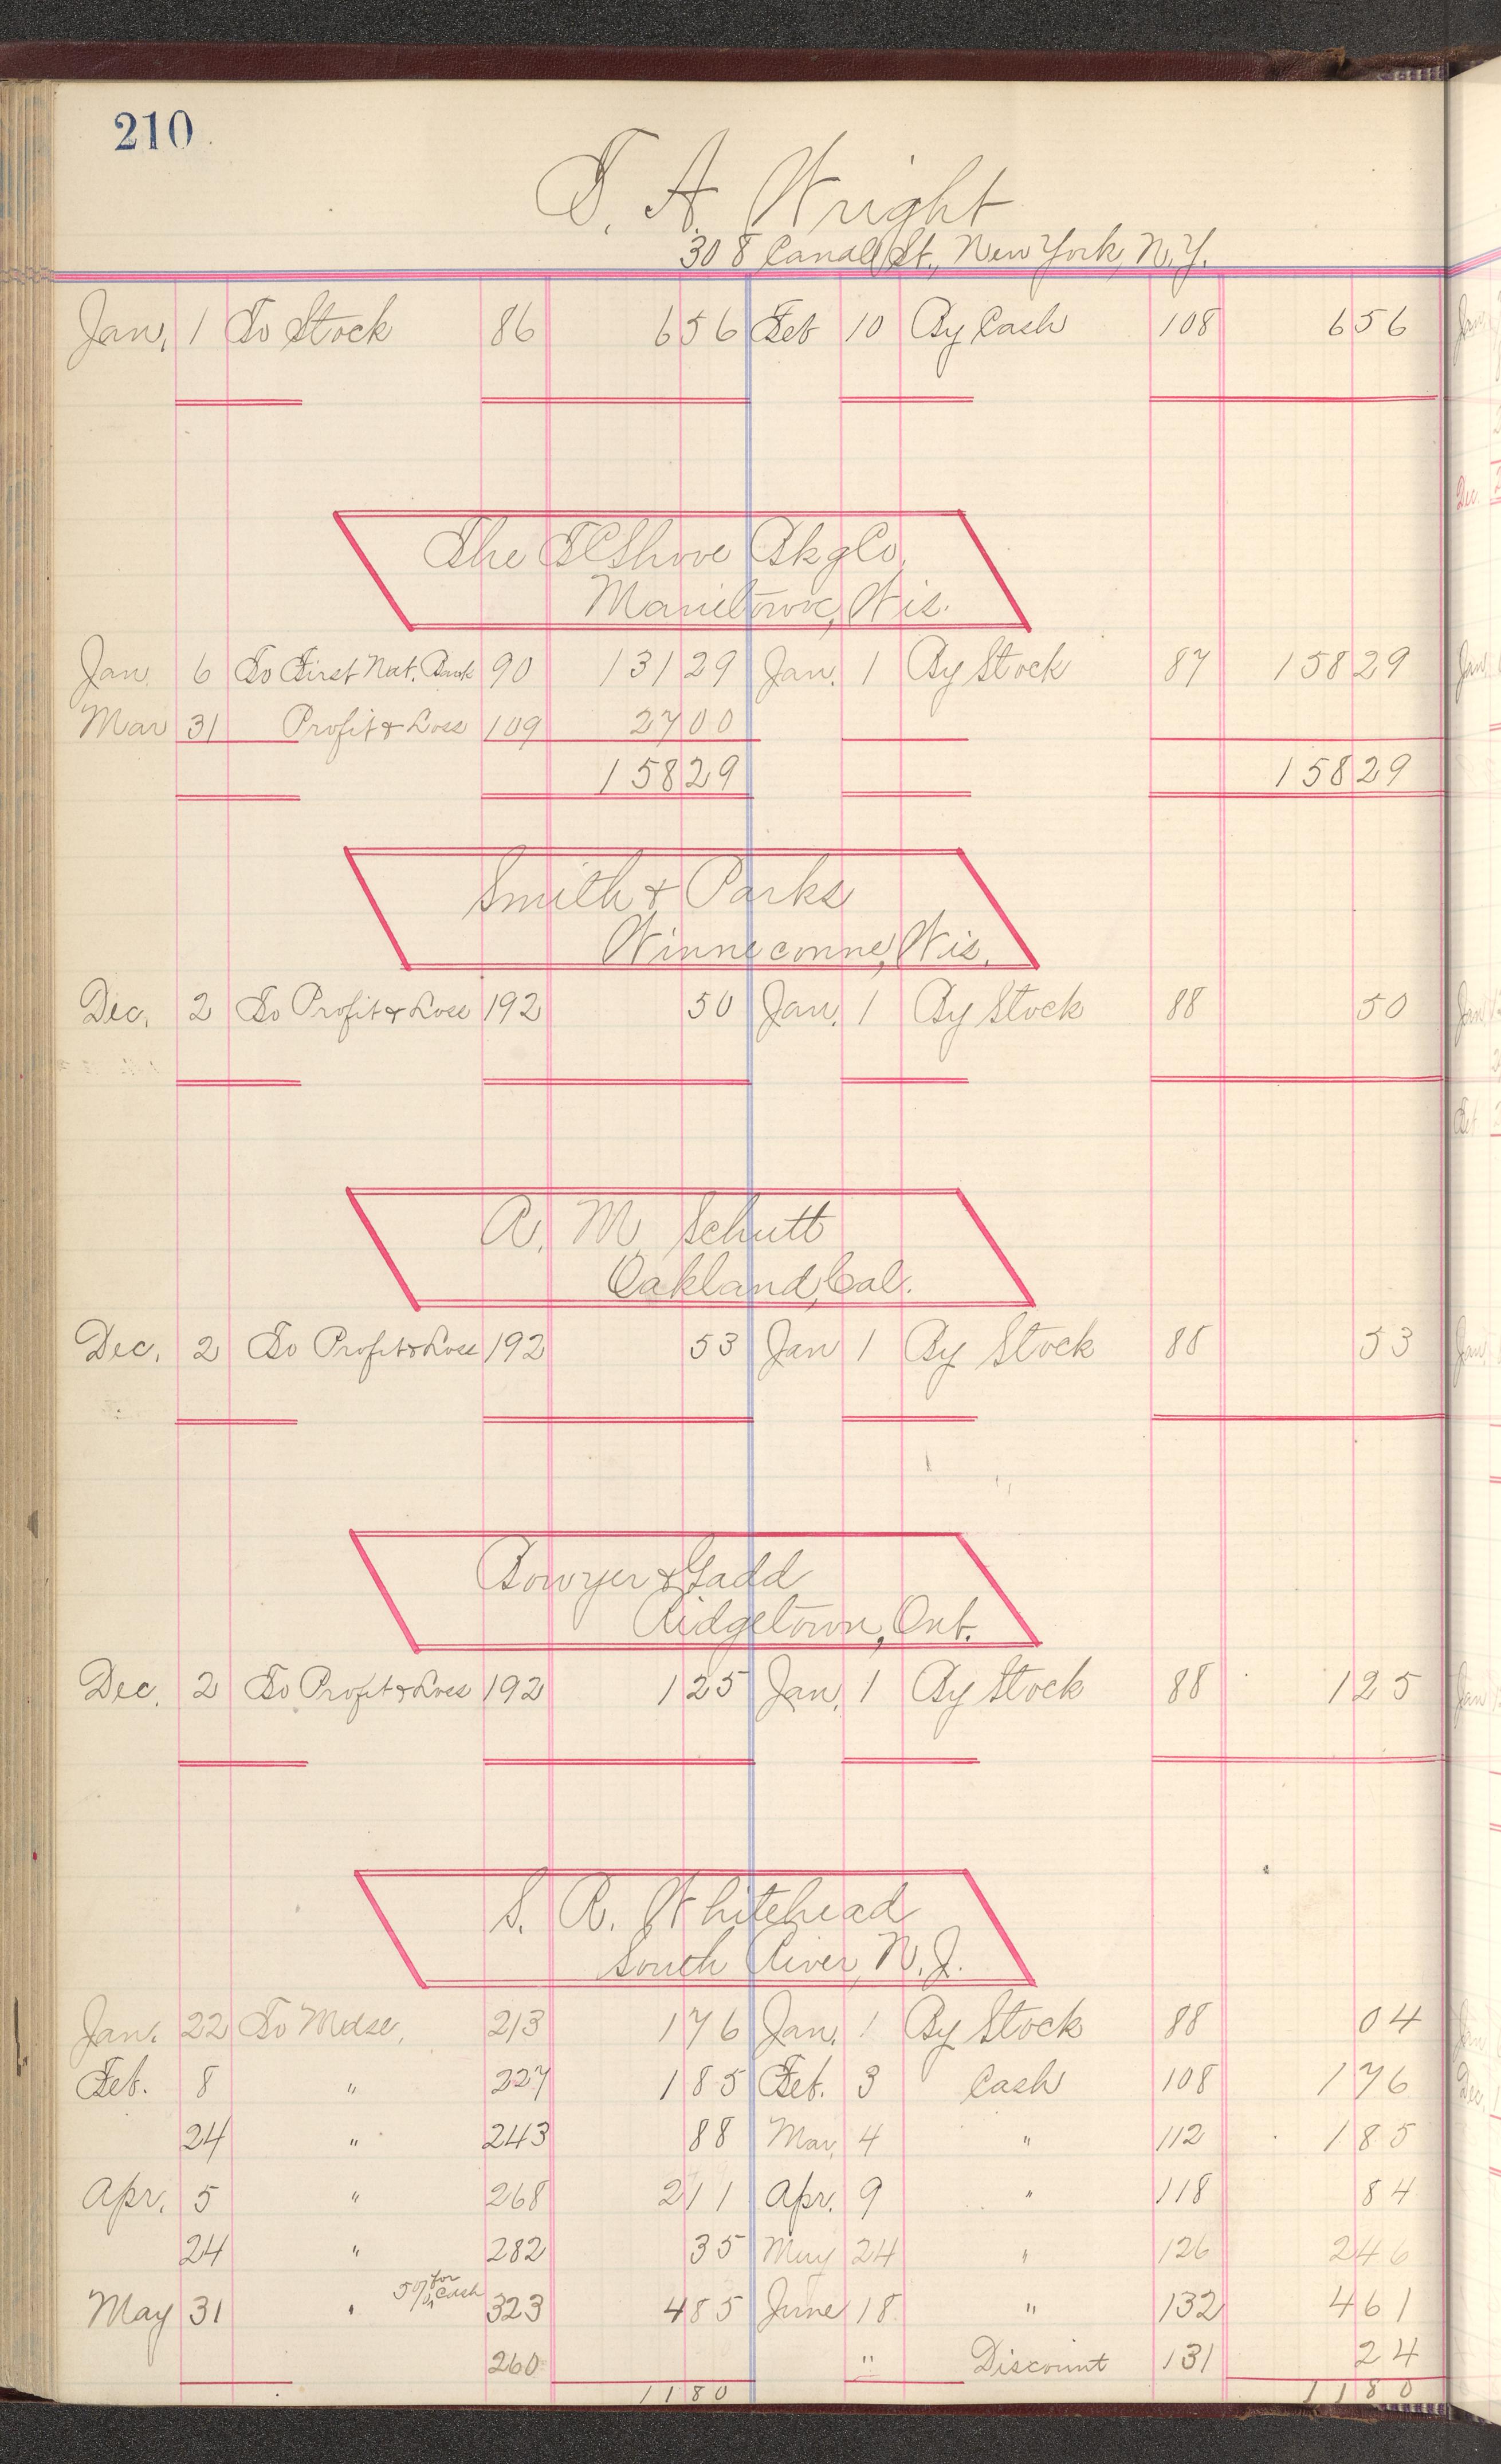 210
T. A. Wright
308 Canal St., New York, N.Y.
Jan. 1 To Stock 86 6 56 Feb 10 By Cash 108 6 56
The T C Shove Bkg Co.
Manitowoc, Wis.
Jan. 6 To First Nat. Bank 90 131 29 Jan. 1 By Stock 87 158 29
Mar 31 Profit & Loss 109 27 00
158 29 158 29
Smith & Parks
Winneconne, Wis.
Dec. 2 To Profit & Loss 192 50 Jan. 1 By Stock 88 50
A. M. Schutt
Oakland, Cal.
Dec. 2 To Profit & Loss 192 53 Jan 1 By Stock 88 53
Bowyer & Gadd
Ridgetown, Ont.
Dec. 2 To Profit & Loss 192 1 25 Jan. 1 By Stock 88 1 25
S. R. Whitehead
South River, N. J.
Jan. 22 To Mdse, 213 1 76 Jan. 1 By Stock 88 04
Feb. 8 " 227 1 85 Feb. 3 Cash 108 1 76
24 " 243 88 Mar. 4 " 112 1 85
Apr. 5 " 268 2 11 Apr. 9 " 118 84
24 " 282 35 May 24 " 126 2 46
May 31 " 5% for Cash 323 4 85 June 18 " 132 4 61
260 " Discount 131 24
11 80 11 80